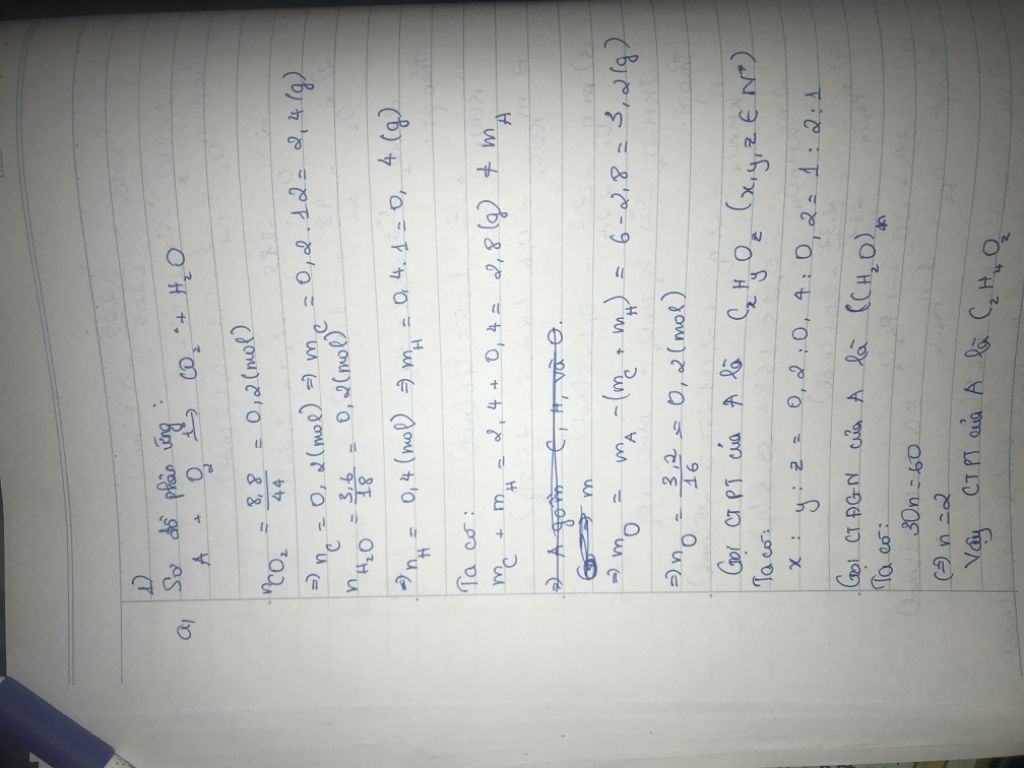 1)
a, Sơ đồ phản ứng:
A + O₂ t°→ CO₂ + H₂O
nCO₂ = 8,8/44 = 0,2 (mol)
⇒ nC = 0,2 (mol) ⇒ mC = 0,2 . 12 = 2,4 (g)
nH₂O = 3,6/18 = 0,2 (mol)
⇒ nH = 0,4 (mol) ⇒ mH = 0,4 . 1 = 0,4 (g)
Ta có:
mC + mH = 2,4 + 0,4 = 2,8 (g) ≠ mA
⇒ A gồm C, H, và O.
m
⇒ mO = mA - (mC + mH) = 6 - 2,8 = 3,2 (g)
⇒ nO = 3,2/16 = 0,2 (mol)
Gọi CTPT của A là CxHyOz (x,y,z ∈ N*)
Ta có:
x : y : z = 0,2 : 0,4 : 0,2 = 1 : 2 : 1
Gọi CTĐGN của A là (CH₂O)n
Ta có:
30n = 60
(⇒) n = 2
Vậy CTPT của A là C₂H₄O₂